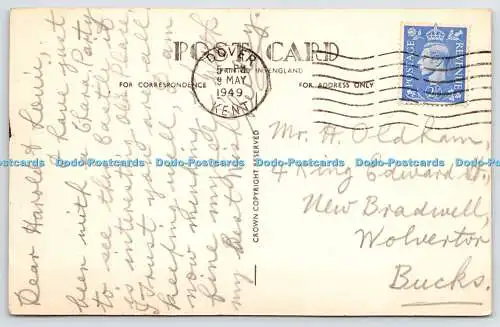 POST CARD
PRINTED IN ENGLAND
FOR CORRESPONDENCE
FOR ADDRESS ONLY
DOVER
5 PM
9 MAY
1949
KENT
POSTAGE
REVENUE
CROWN COPYRIGHT RESERVED
Mr. H. Oldham,
4 King Edward St.
New Bradwell,
Wolverton
Bucks.
Dear Harold & Louie,
I have just
been with a Choir Party
to see this Castle, it
is interesting old place.
I trust you are all
keeping well. I am
now
fine myself with
my best
Dodo-Postcards Dodo-Postcards Dodo-Postcards Dodo-Postcards Dodo-Postcards Dodo-Postcards